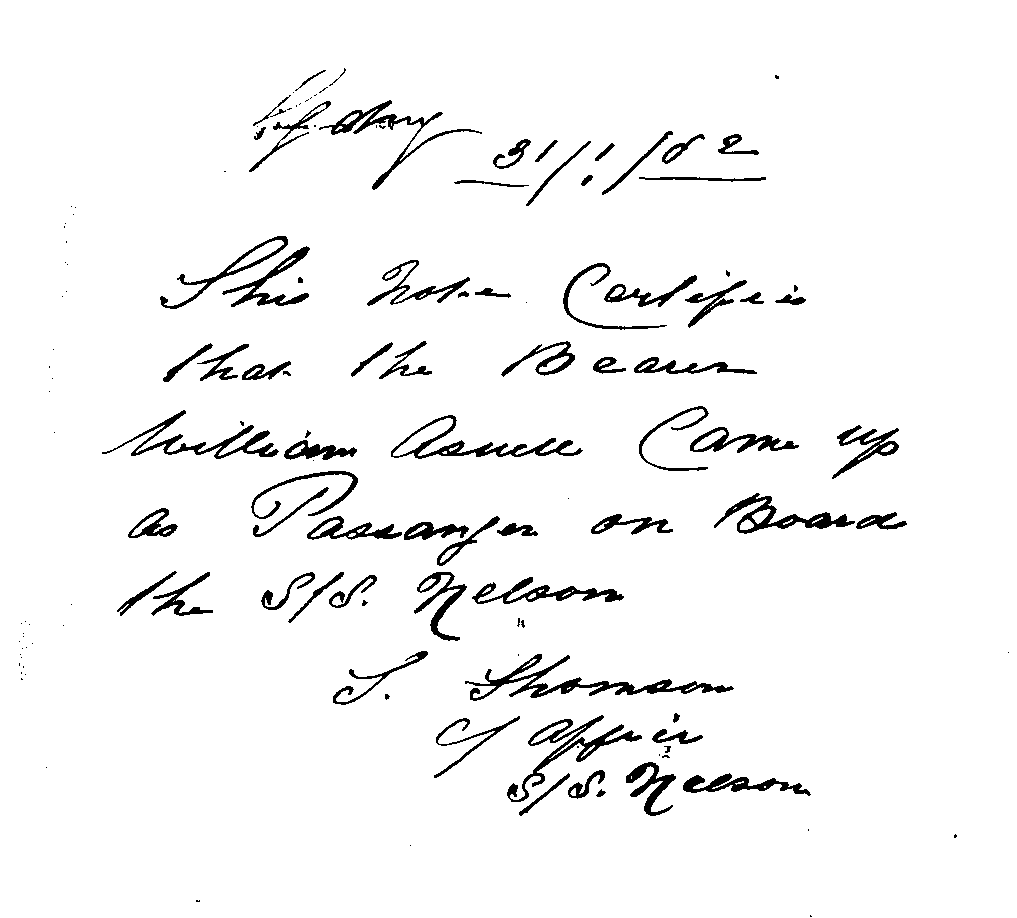 Sydney 31/1/82
This Note Certifies
that the Bearer
William Came up
as Passanger on Board
the S/S. Nelson
T. Thomson
C/ Officer
S/S. Nelson